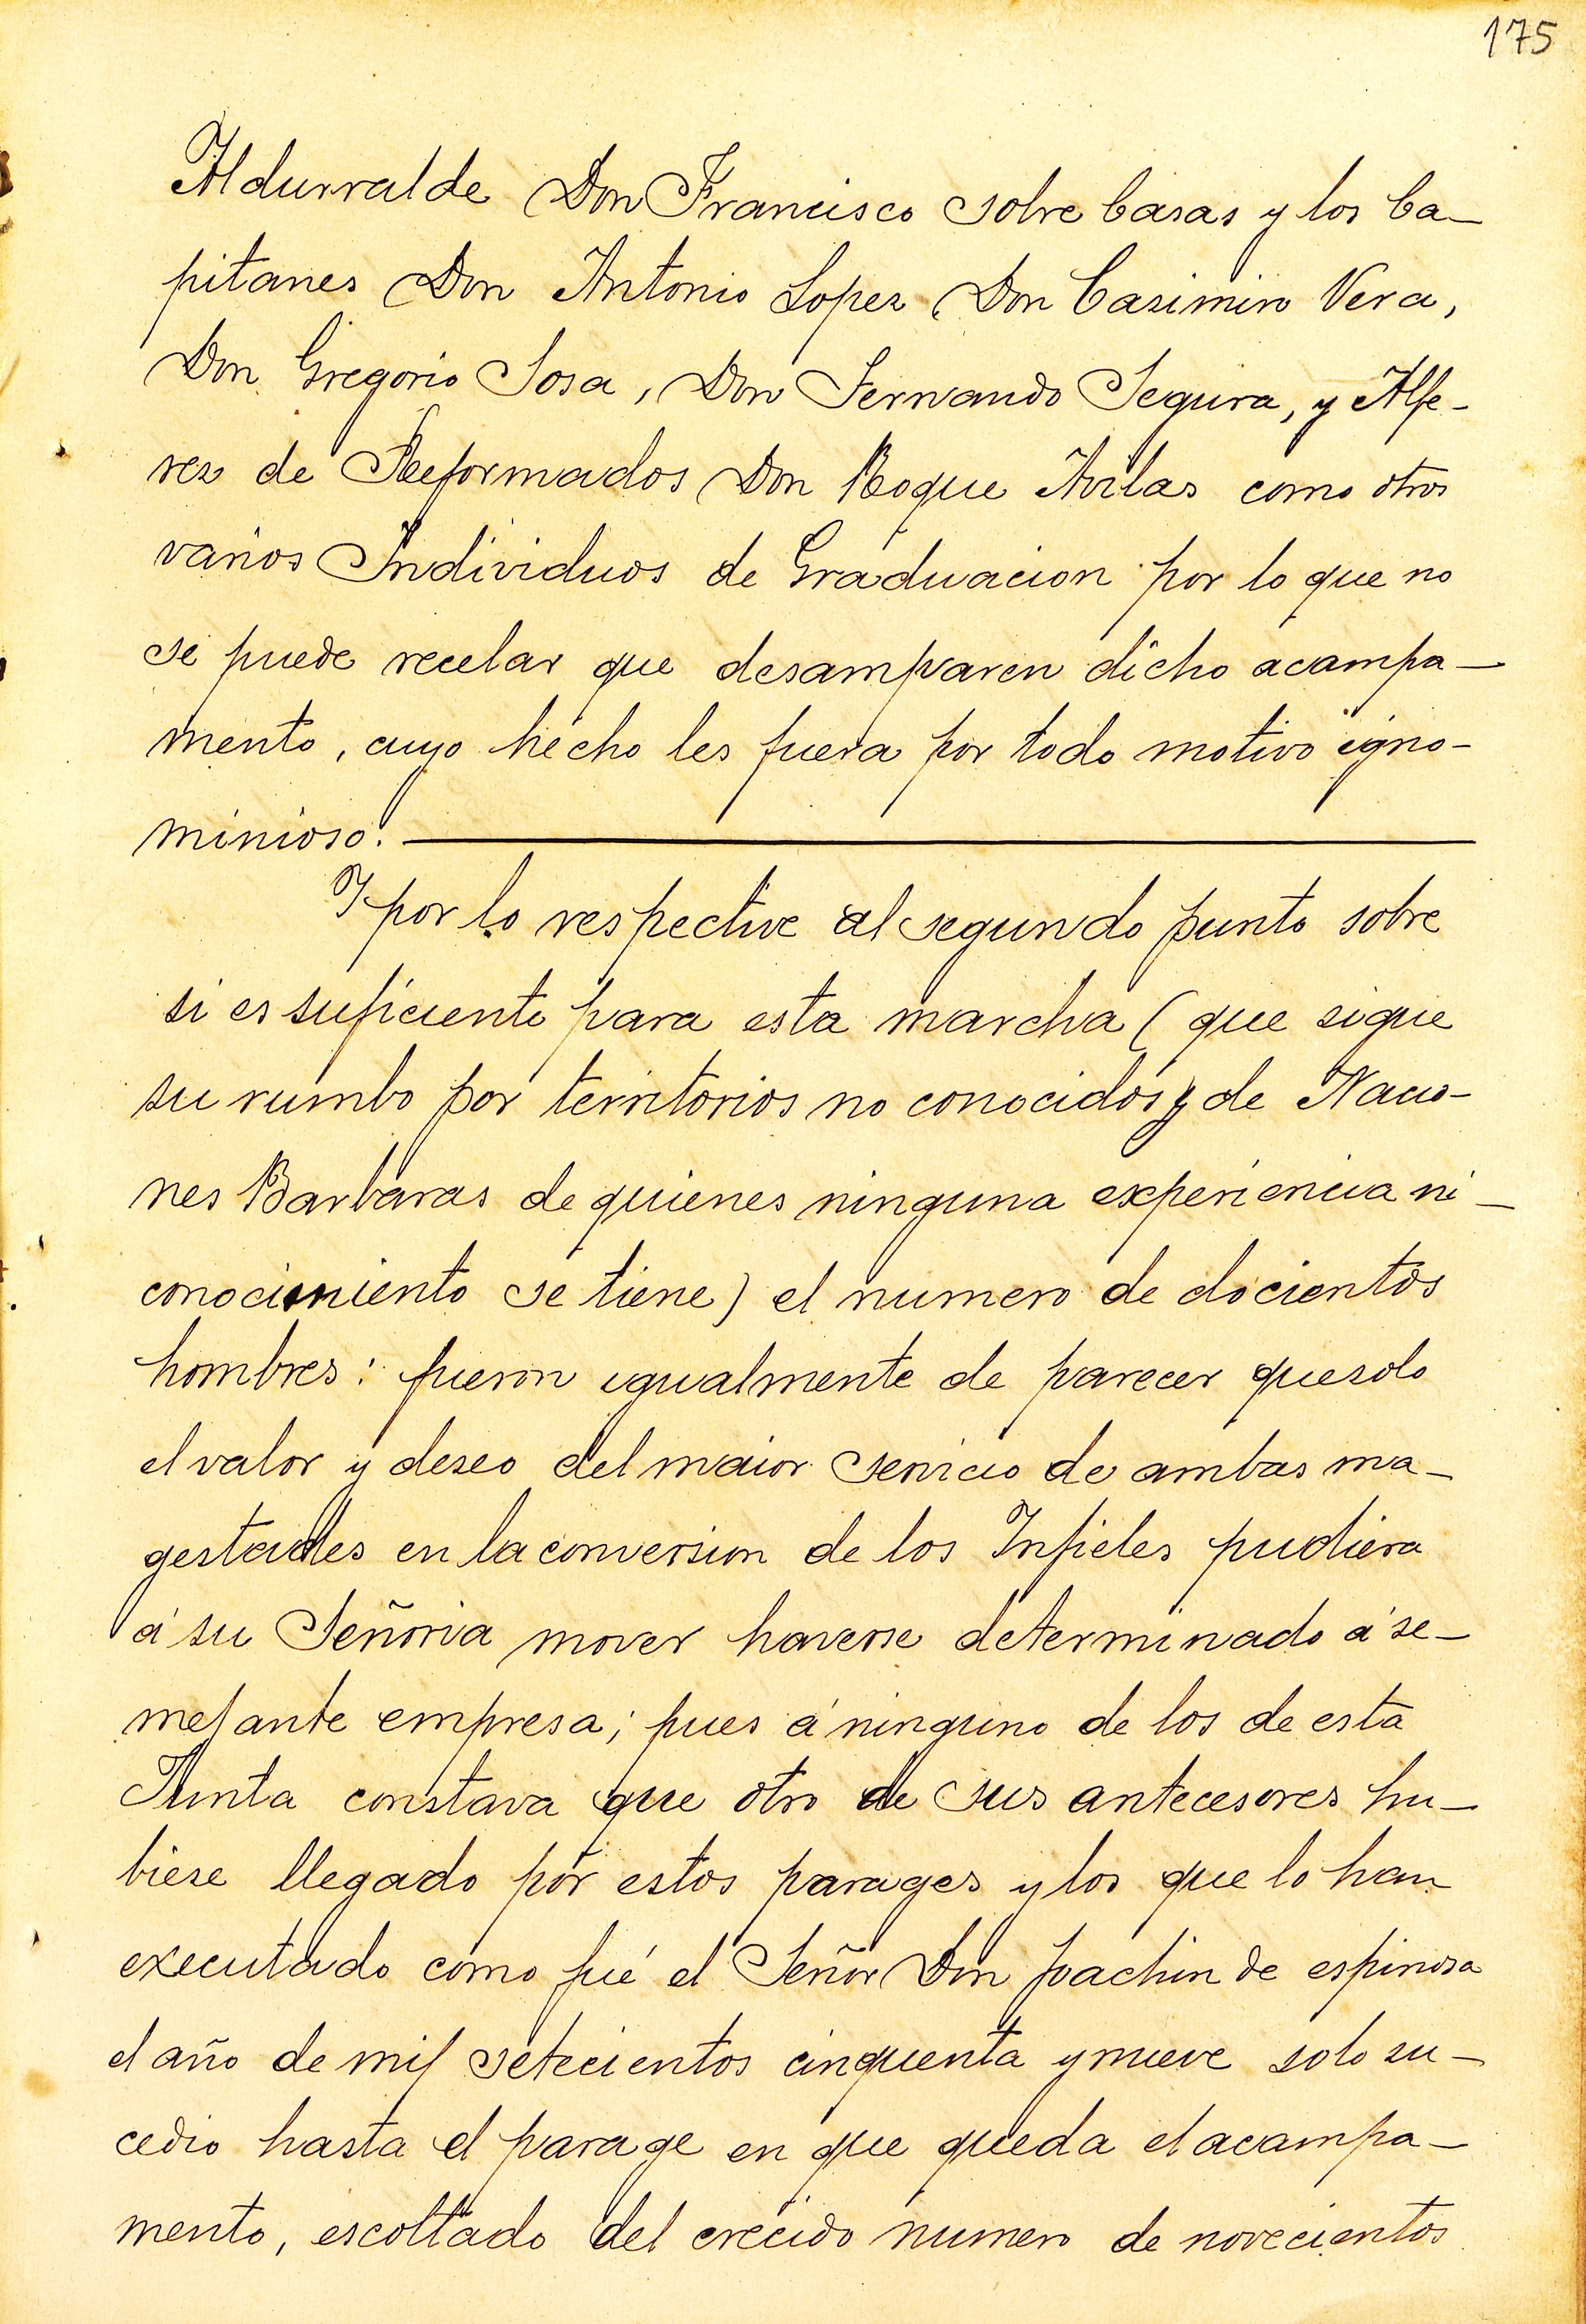 175
Aldurralde Don Francisco sobre Casas y los Ca-
pitanes Don Antonio Lopez Don Casimiro Vera,
Don Gregorio Sosa, Don Fernando Segura, y Alfe-
rez de Reformados Don Roque Avilas como otros
varios Individuos de Graduacion por lo que no
se puede recelar que desamparen dicho acampa-
mento, cuyo hecho les fuera por todo motivo igno-
minioso.
Y por lo respective al segundo punto sobre
si es suficiente para esta marcha (que sigue
su rumbo por territorios no conocidos y de Nacio-
nes Barbaras de quienes ninguna experiencia ni-
conocimiento se tiene) el numero de docientos
hombres: fueron igualmente de parecer que solo
el valor y deseo del maior servicio de ambas ma-
gestades en la conversion de los Infieles pudiera
á su Señoria mover haverse determinado á se-
mejante empresa; pues á ninguno de los de esta
Junta constava que otro de sus antecesores hu-
biese llegado por estos parages y los que lo han
executado como fué el Señor Don Joachin de espinosa
el año de mil setecientos cinquenta y nueve solo su-
cedio hasta el parage en que queda el acampa-
mento, escoltado del crecido numero de novecientos